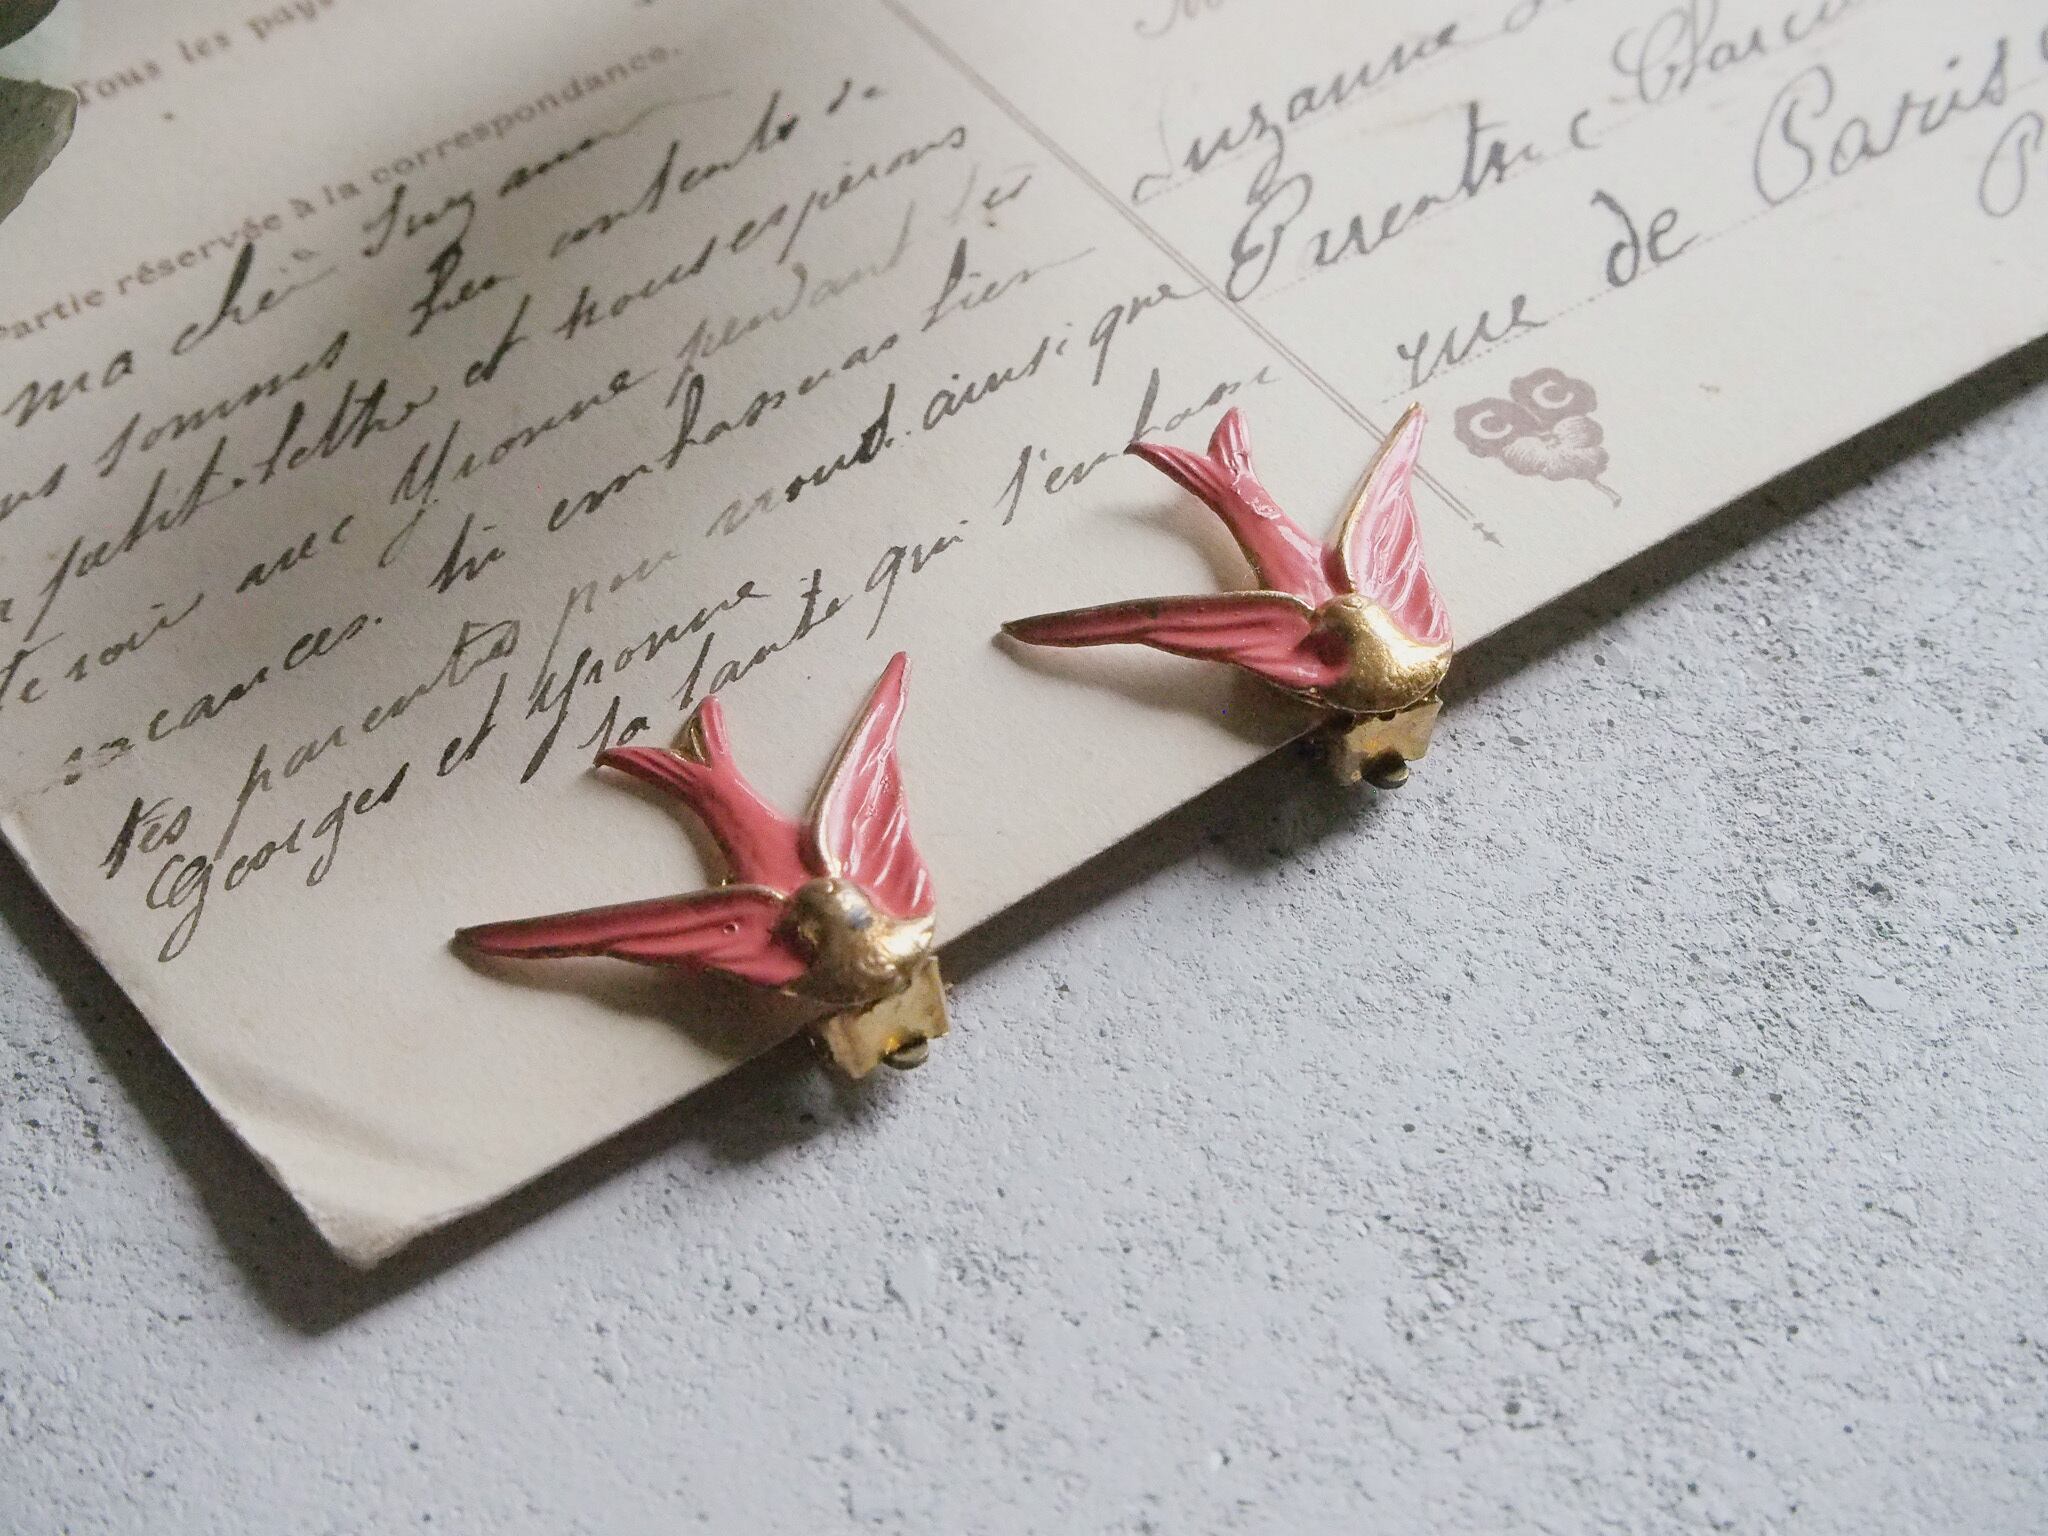 Tous les pays
Partie réservée à la correspondance.
ma chère Suzanne
sommes bien contents de
petite lettre et nous espérons
te voir avec Yvonne pendant tes
vacances. tu embrasseras bien
tes parents pour nous ainsi que
Georges et Yvonne
ta tante qui t'embrasse
Suzanne
rue de Paris
CC